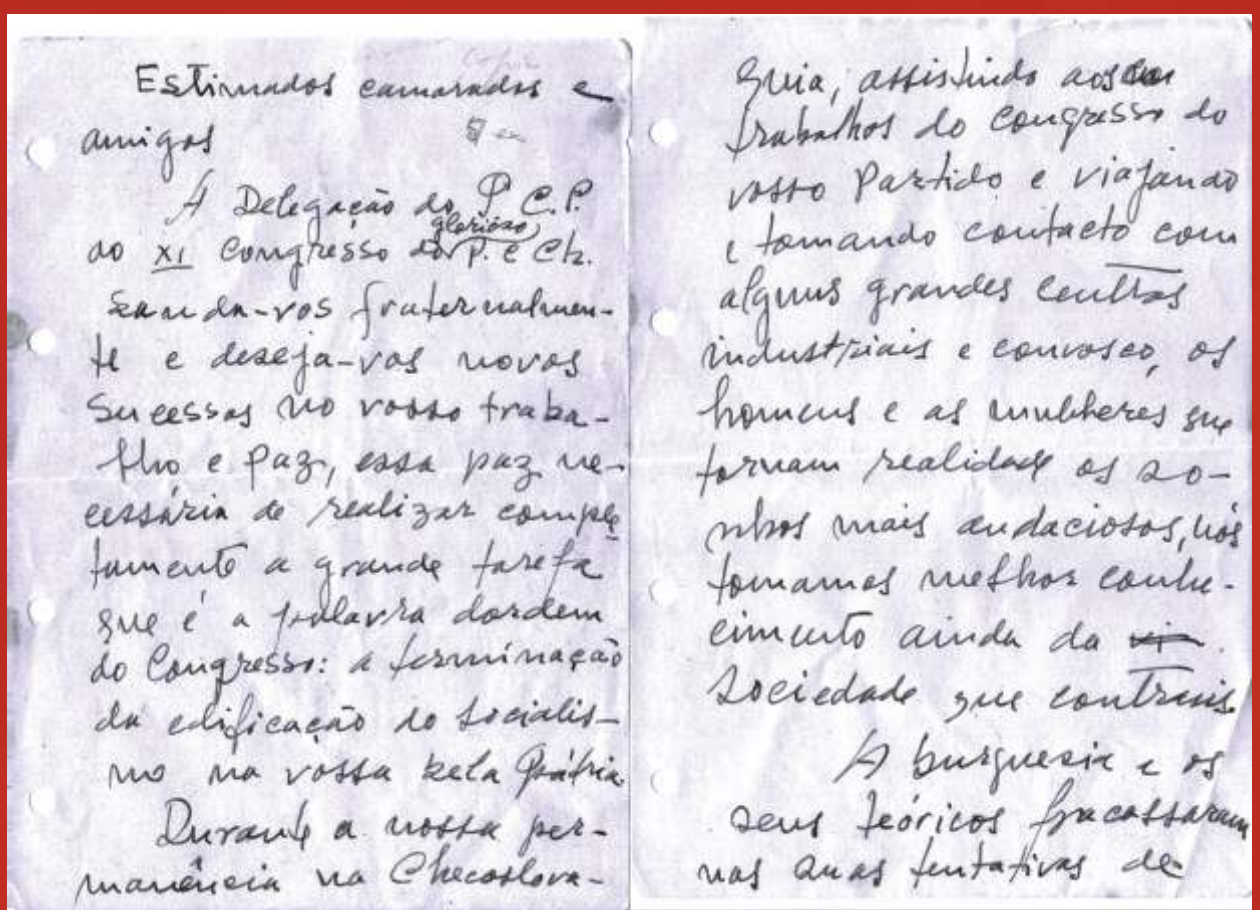 Estimados camaradas e
amigos
A Delegação do P.C.P.
ao XI Congresso do glorioso P. C Ch.
saauda-vos fraternalmen-
te e deseja-vos novos
sucessos no vosso traba-
lho e paz, essa paz ne-
cessária de realizar comple
tamente a grande tarefa
que é a palavra dordem
do Congresso: a terminação
da edificação do socialis-
mo na vossa bela Pátria
Durante a nossa per-
manência na Checoslova-
quia, assistindo aos
trabalhos do congresso do
vosso Partido e viajando
e tomando contacto com
alguns grandes centros
industriais e convosco, os
homens e as mulheres que
tornam realidade os so-
nhos mais audaciosos, nós
tomamos melhor conhe-
cimento ainda da
sociedade que contruis.
A burguesia e os
seus teóricos fracassaram
nas suas tentativas de